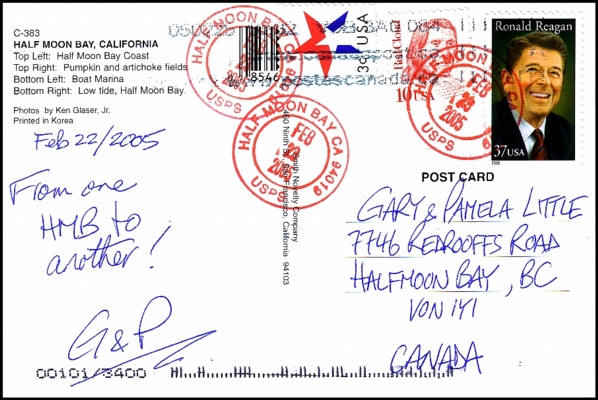 C-383
HALF MOON BAY, CALIFORNIA
Top Left: Half Moon Bay Coast
Top Right: Pumpkin and artichoke fields
Bottom Left: Boat Marina
Bottom Right: Low tide, Half Moon Bay.
Photos by Ken Glaser, Jr.
Printed in Korea
Feb 22/2005
From one
HMB to
another!
G&P
00101/3400
8546
Smith Novelty Company
460 Ninth St., San Francisco, California 94103
HALF MOON BAY CA
2005
USPS
HALF MOON BAY CA 94019
FEB
2005
USPS
USA
Red Cloud
10 USA
HALF MOON
FEB
2005
USPS
Ronald Reagan
37 USA
postescanada.ca
POST CARD
GARY & PAMELA LITTLE
7746 REDROOFFS ROAD
HALFMOON BAY, BC
VON 1Y1
CANADA